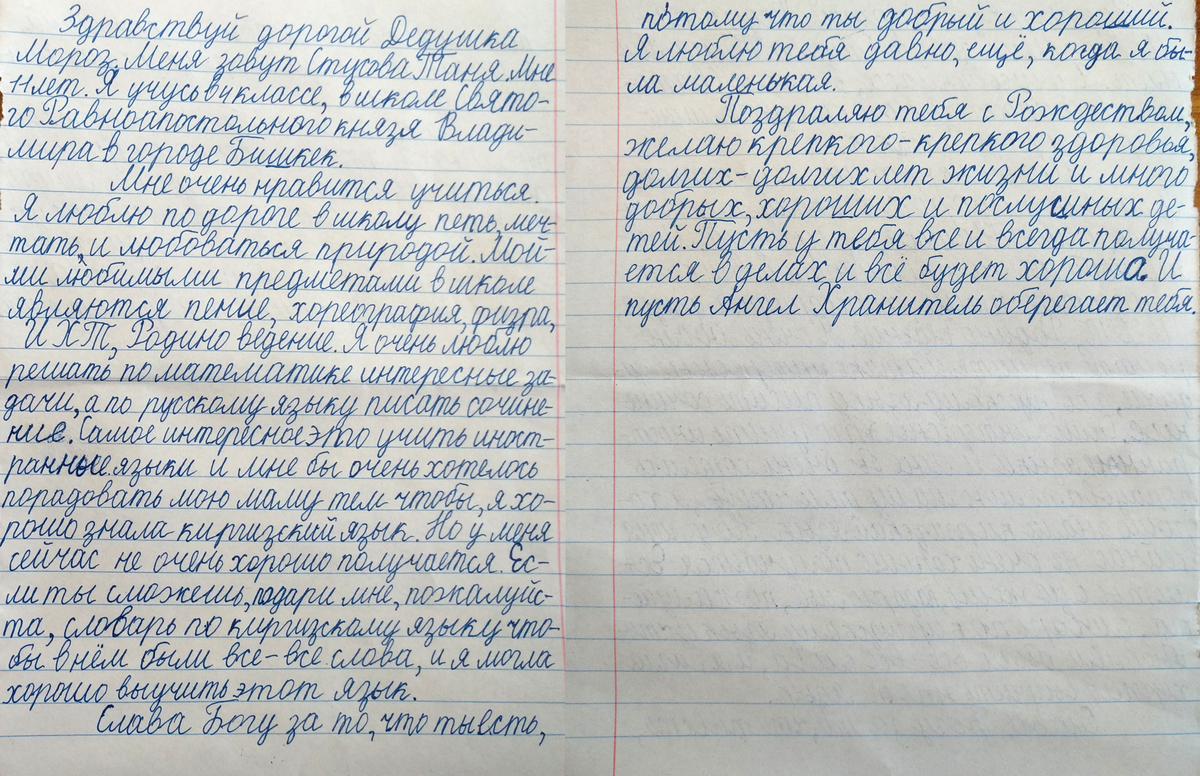 Здравствуй дорогой Дедушка
Мороз. Меня зовут Стусова Таня. Мне
11 лет. Я учусь в 4 классе, в школе Свято-
го Равноапостольного князя Влади-
мира в городе Бишкек.
Мне очень нравится учиться.
Я люблю по дороге в школу петь, меч-
тать, и любоваться природой. Мой-
ми любимыми предметами в школе
являются пение, хореография, физра,
ИХТ, Родино ведение. Я очень люблю
решать по математике интересные за-
дачи, а по русскому языку писать сочине-
ние. Самое интересное это учить иност-
ранные языки и мне бы очень хотелось
порадовать мою маму тем чтобы, я хо-
рошо знала киргизский язык. Но у меня
сейчас не очень хорошо получается. Ес-
ли ты сможешь, подари мне, пожалуйс-
та, словарь по киргизскому языку что-
бы в нём были все-все слова, и я могла
хорошо выучить этот язык.
Слава Богу за то, что ты есть,
потому что ты добрый и хороший.
Я люблю тебя давно, ещё, когда я бы-
ла маленькая.
Поздраляю тебя с Рождеством,
желаю крепкого-крепкого здоровья,
долгих-долгих лет жизни и много
добрых, хороших и послушных де-
тей. Пусть у тебя все и всегда получа-
ется в делах и всё будет хороша. И
пусть Ангел Хранитель оберегает тебя.